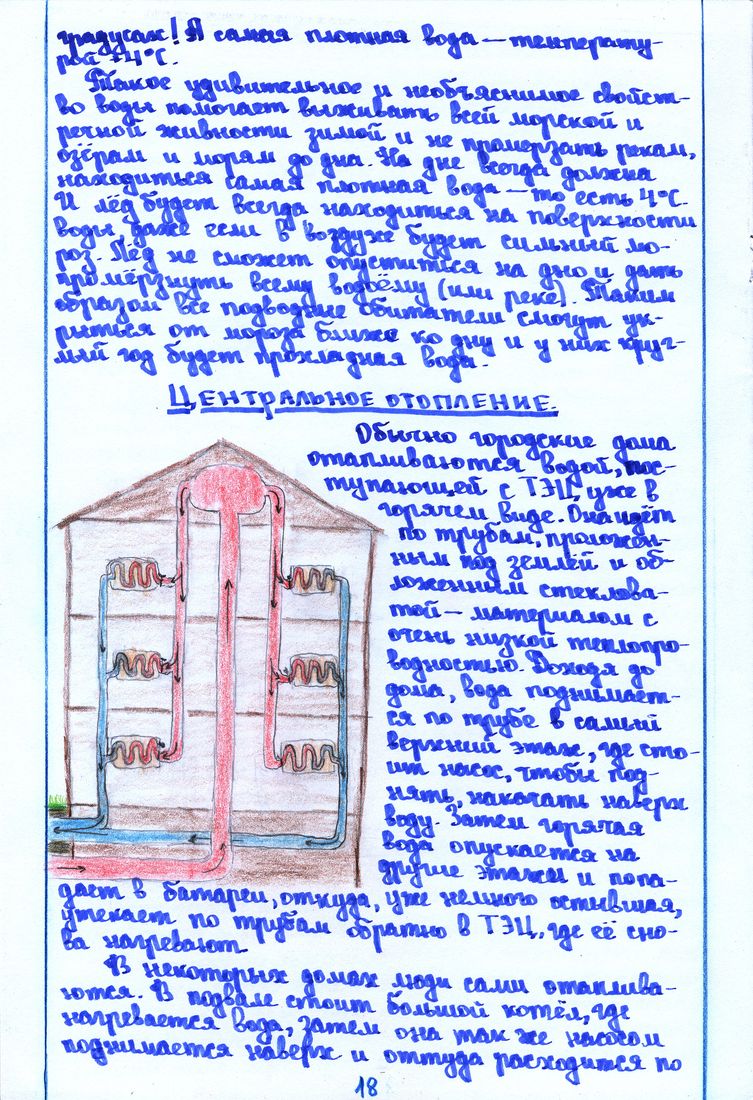 градусах! А самая плотная вода — температу-
рой +4°С.
Такое удивительное и необъяснимое свойст-
во воды помогает выживать всей морской и
речной живности зимой и не промерзать рекам,
озёрам и морям до дна. На дне всегда должна
находиться самая плотная вода — то есть 4°С.
И лёд будет всегда находиться на поверхности
воды, даже если в воздухе будет сильный мо-
роз. Лёд не сможет опуститься на дно и дать
промёрзнуть всему водоёму (или реке). Таким
образом все подводные обитатели смогут ук-
рыться от мороза ближе ко дну и у них круг-
лый год будет прохладная вода.
ЦЕНТРАЛЬНОЕ ОТОПЛЕНИЕ.
Обычно городские дома
отапливаются водой, пос-
тупающей с ТЭЦ уже в
горячем виде. Она идёт
по трубам, проложен-
ным под землёй и об-
ложенным стеклова-
той — материалом с
очень низкой теплопро-
водностью. Доходя до
дома, вода поднимает-
ся по трубе в самый
верхний этаж, где сто-
ит насос, чтобы под-
нять, накачать наверх
воду. Затем горячая
вода опускается на
другие этажи и попа-
дает в батареи, откуда, уже немного остывшая,
утекает по трубам обратно в ТЭЦ, где её сно-
ва нагревают.
В некоторых домах люди сами отаплива-
ются. В подвале стоит большой котёл, где
нагревается вода, затем она так же насосом
поднимается наверх и оттуда расходится по
18